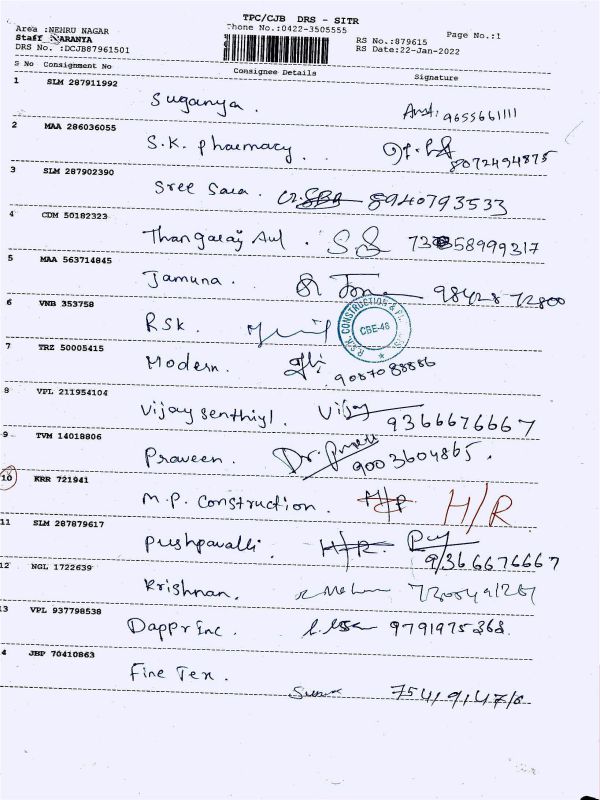 TPC/CJB DRS - SITR
Area :NEHRU NAGAR
Phone No.:0422-3505555
Page No.:1
Staff :NARANYA
RS No.:879615
DRS No. :DCJB87961501
RS Date:22-Jan-2022
S No Consignment No Consignee Details Signature
1 SLM 287911992
Suganya. 9655661111
2 MAA 286036055
S.K. pharmacy. 8072494875
3 SLM 287902390
Sree Sara. 8940793533
4 CDM 50182323
Thangaraj Aul.
5 MAA 563714845
Jamuna. 98428 72800
6 VNB 353758
RSK.
CBE-48
7 TRZ 50005415
Modern. 9087088886
8 VPL 211954104
Vijay Senthiyl. Vijay 9366676667
9 TVM 14018806
Praveen. 9003604865.
10 KRR 721941
M.P. Construction. H/R
11 SLM 287879617
Pushpavalli. H/R. 9366676667
12 NGL 1722639
Krishnan.
13 VPL 937798538
Dappr Inc. 9791975368.
4 JBP 70410863
Fine Tex.